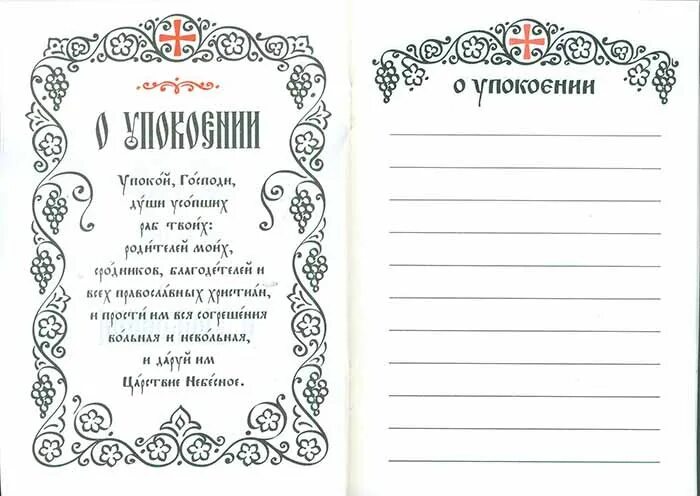 О УПОКОЕНИИ
Упоко́й, Го́споди,
ду́ши усо́пших
раб твои́х:
роди́телей мои́х,
сро́дников, благоде́телей и
всех правосла́вных христиа́н,
и прости́ им вся согреше́ния
во́льная и нево́льная,
и да́руй им
Ца́рствие Небе́сное.
О УПОКОЄНИИ